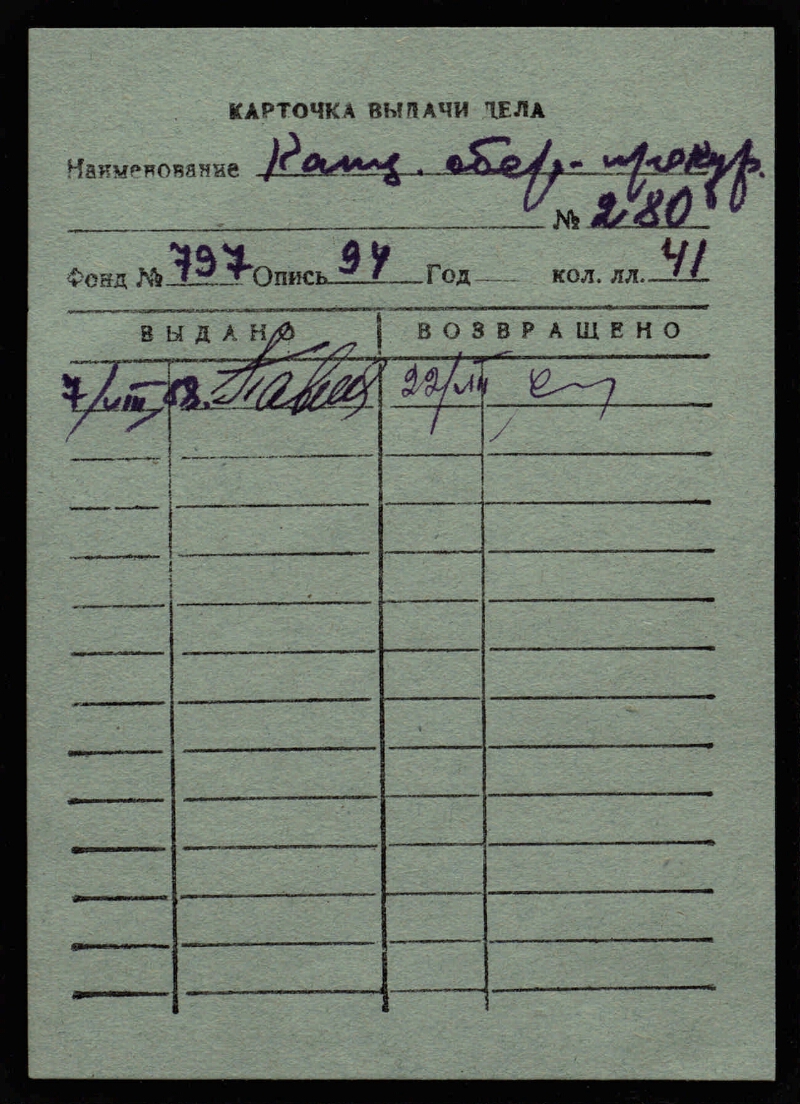 КАРТОЧКА ВЫДАЧИ ДЕЛА
Наименование Канц. обер-прокур.
№ 280
Фонд № 797 Опись 94 Год кол. лл. 41
ВЫДАНО ВОЗВРАЩЕНО
7/VIII 22/VIII